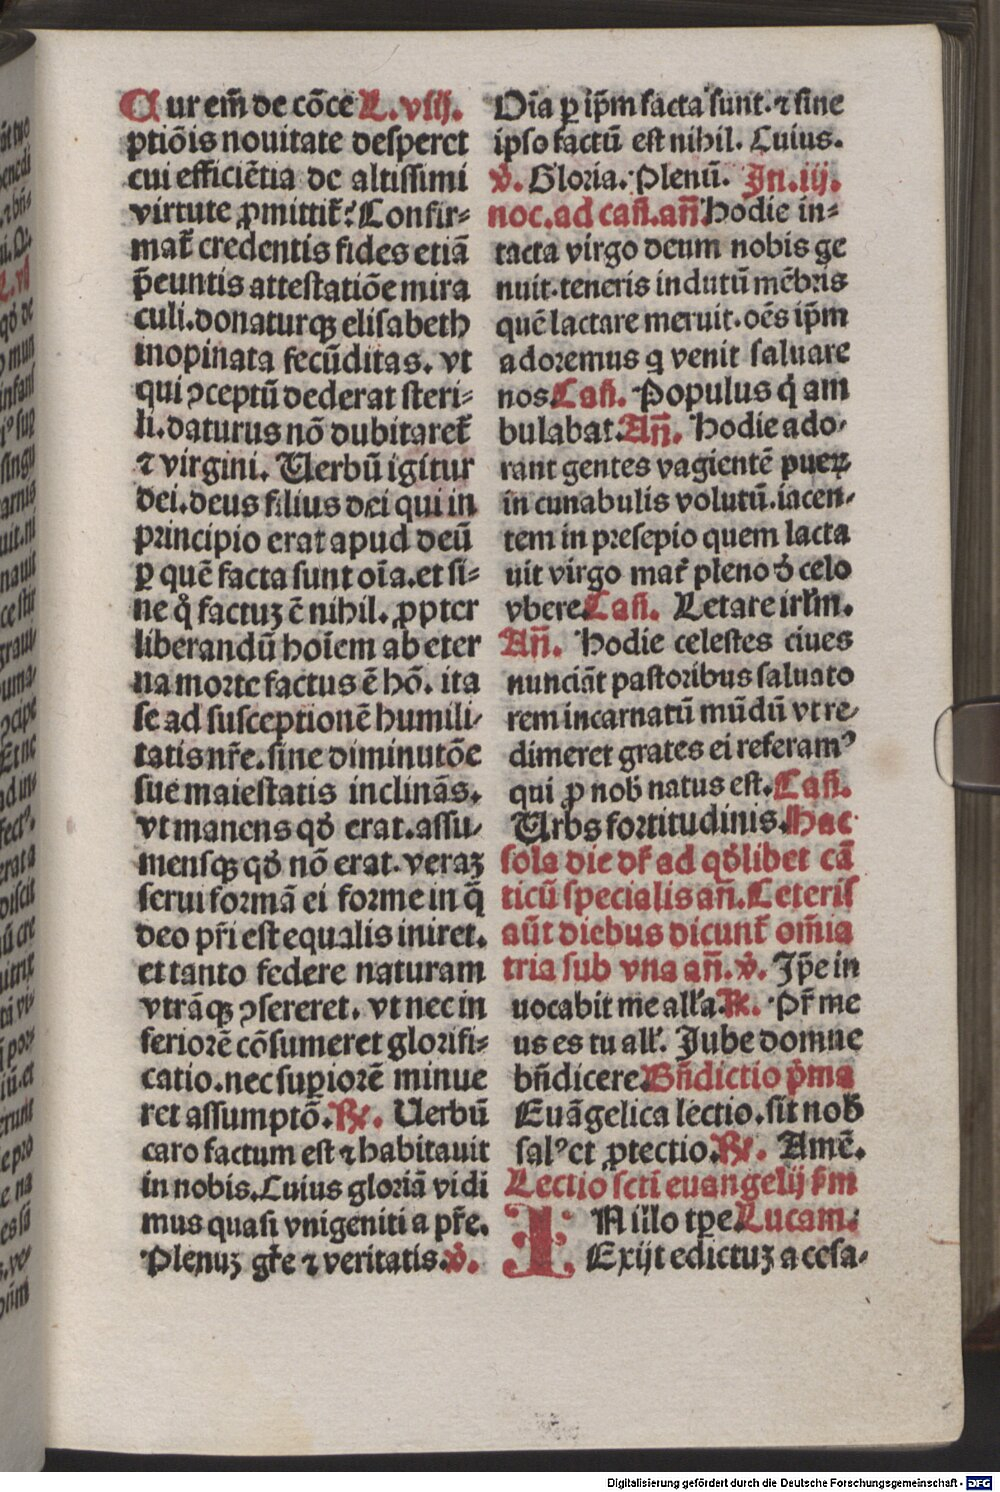 Cur em̄ de cõce L. viij.
ptiõis nouitate desperet
cui efficiẽtia de altissimi
virtute ꝓmittit᷑? Confir⸗
mat᷑ credentis fides etiã
p̃euntis attestatiõe mira
culi. donaturqꝫ elisabeth
inopinata fecũditas. vt
qui ꝯceptũ dederat steri⸗
li. daturus nõ dubitaret᷑
⁊ virgini. Uerbũ igitur
dei. deus filius dei qui in
principio erat apud deũ
ꝑ quẽ facta sunt oĩa. et si⸗
ne q̊ factuꝫ ẽ nihil. ꝓpter
liberandũ hoĩem ab eter
na morte factus ẽ hõ. ita
se ad susceptionẽ humili⸗
tatis nr̃e. sine diminutõe
sue maiestatis inclinãs.
vt manens qd̛ erat. assu⸗
mensqꝫ qd̛ nõ erat. veraꝫ
serui formã ei forme in q̃
deo pr̃i est equalis iniret.
et tanto federe naturam
vtrãqꝫ ꝯsereret. vt nec in
feriorẽ cõsumeret glorifi⸗
catio. nec supiorẽ minue
ret assumptõ. ℞. Uerbũ
caro factum est ⁊ habitauit
in nobis. Cuius gloriã vidi
mus quasi vnigeniti a pr̃e.
Plenuꝫ gr̃e ⁊ veritatis. ℣.
Oĩa ꝑ ip̃m facta sunt. ⁊ sine
ipso factũ est nihil. Cuius.
℣. Gloria. Plenũ. In. iij.
noc. ad cañ. añ Hodie in⸗
tacta virgo deum nobis ge
nuit. teneris indutũ mẽbris
quẽ lactare meruit. oẽs ip̃m
adoremus q venit saluare
nos Cañ. Populus q̇ am
bulabat. Añ. Hodie ado⸗
rant gentes vagientẽ pueꝝ
in cunabulis volutũ. iacen⸗
tem in presepio quem lacta
uit virgo mat᷑ pleno d̛ celo
vbere Cañ. Letare irl̃m.
Añ. Hodie celestes ciues
nunciãt pastoribus saluato
rem incarnatũ mũdũ vt re⸗
dimeret grates ei referamꝰ
qui ꝓ nob̃ natus est. Cañ.
Urbs fortitudinis. Hac
sola die dr̃ ad qd̛libet cã
ticũ specialis añ. Ceteris
aũt diebus dicunt᷑ om̃ia
tria sub vna añ. ℣. Ip̃e in
uocabit me all̃a ℞. Pr̃ me
us es tu all̃. Jube domne
bñdicere. Bñdictio p̃ma
Euãgelica lectio. sit nob̃
salꝰ et ꝓtectio ℞. Amẽ.
Lectio scti euangelij sm̃
IN illo tꝑe. Lucam.
Exijt edictuꝫ a cesa⸗
Digitalisierung gefördert durch die Deutsche Forschungsgemeinschaft - DFG